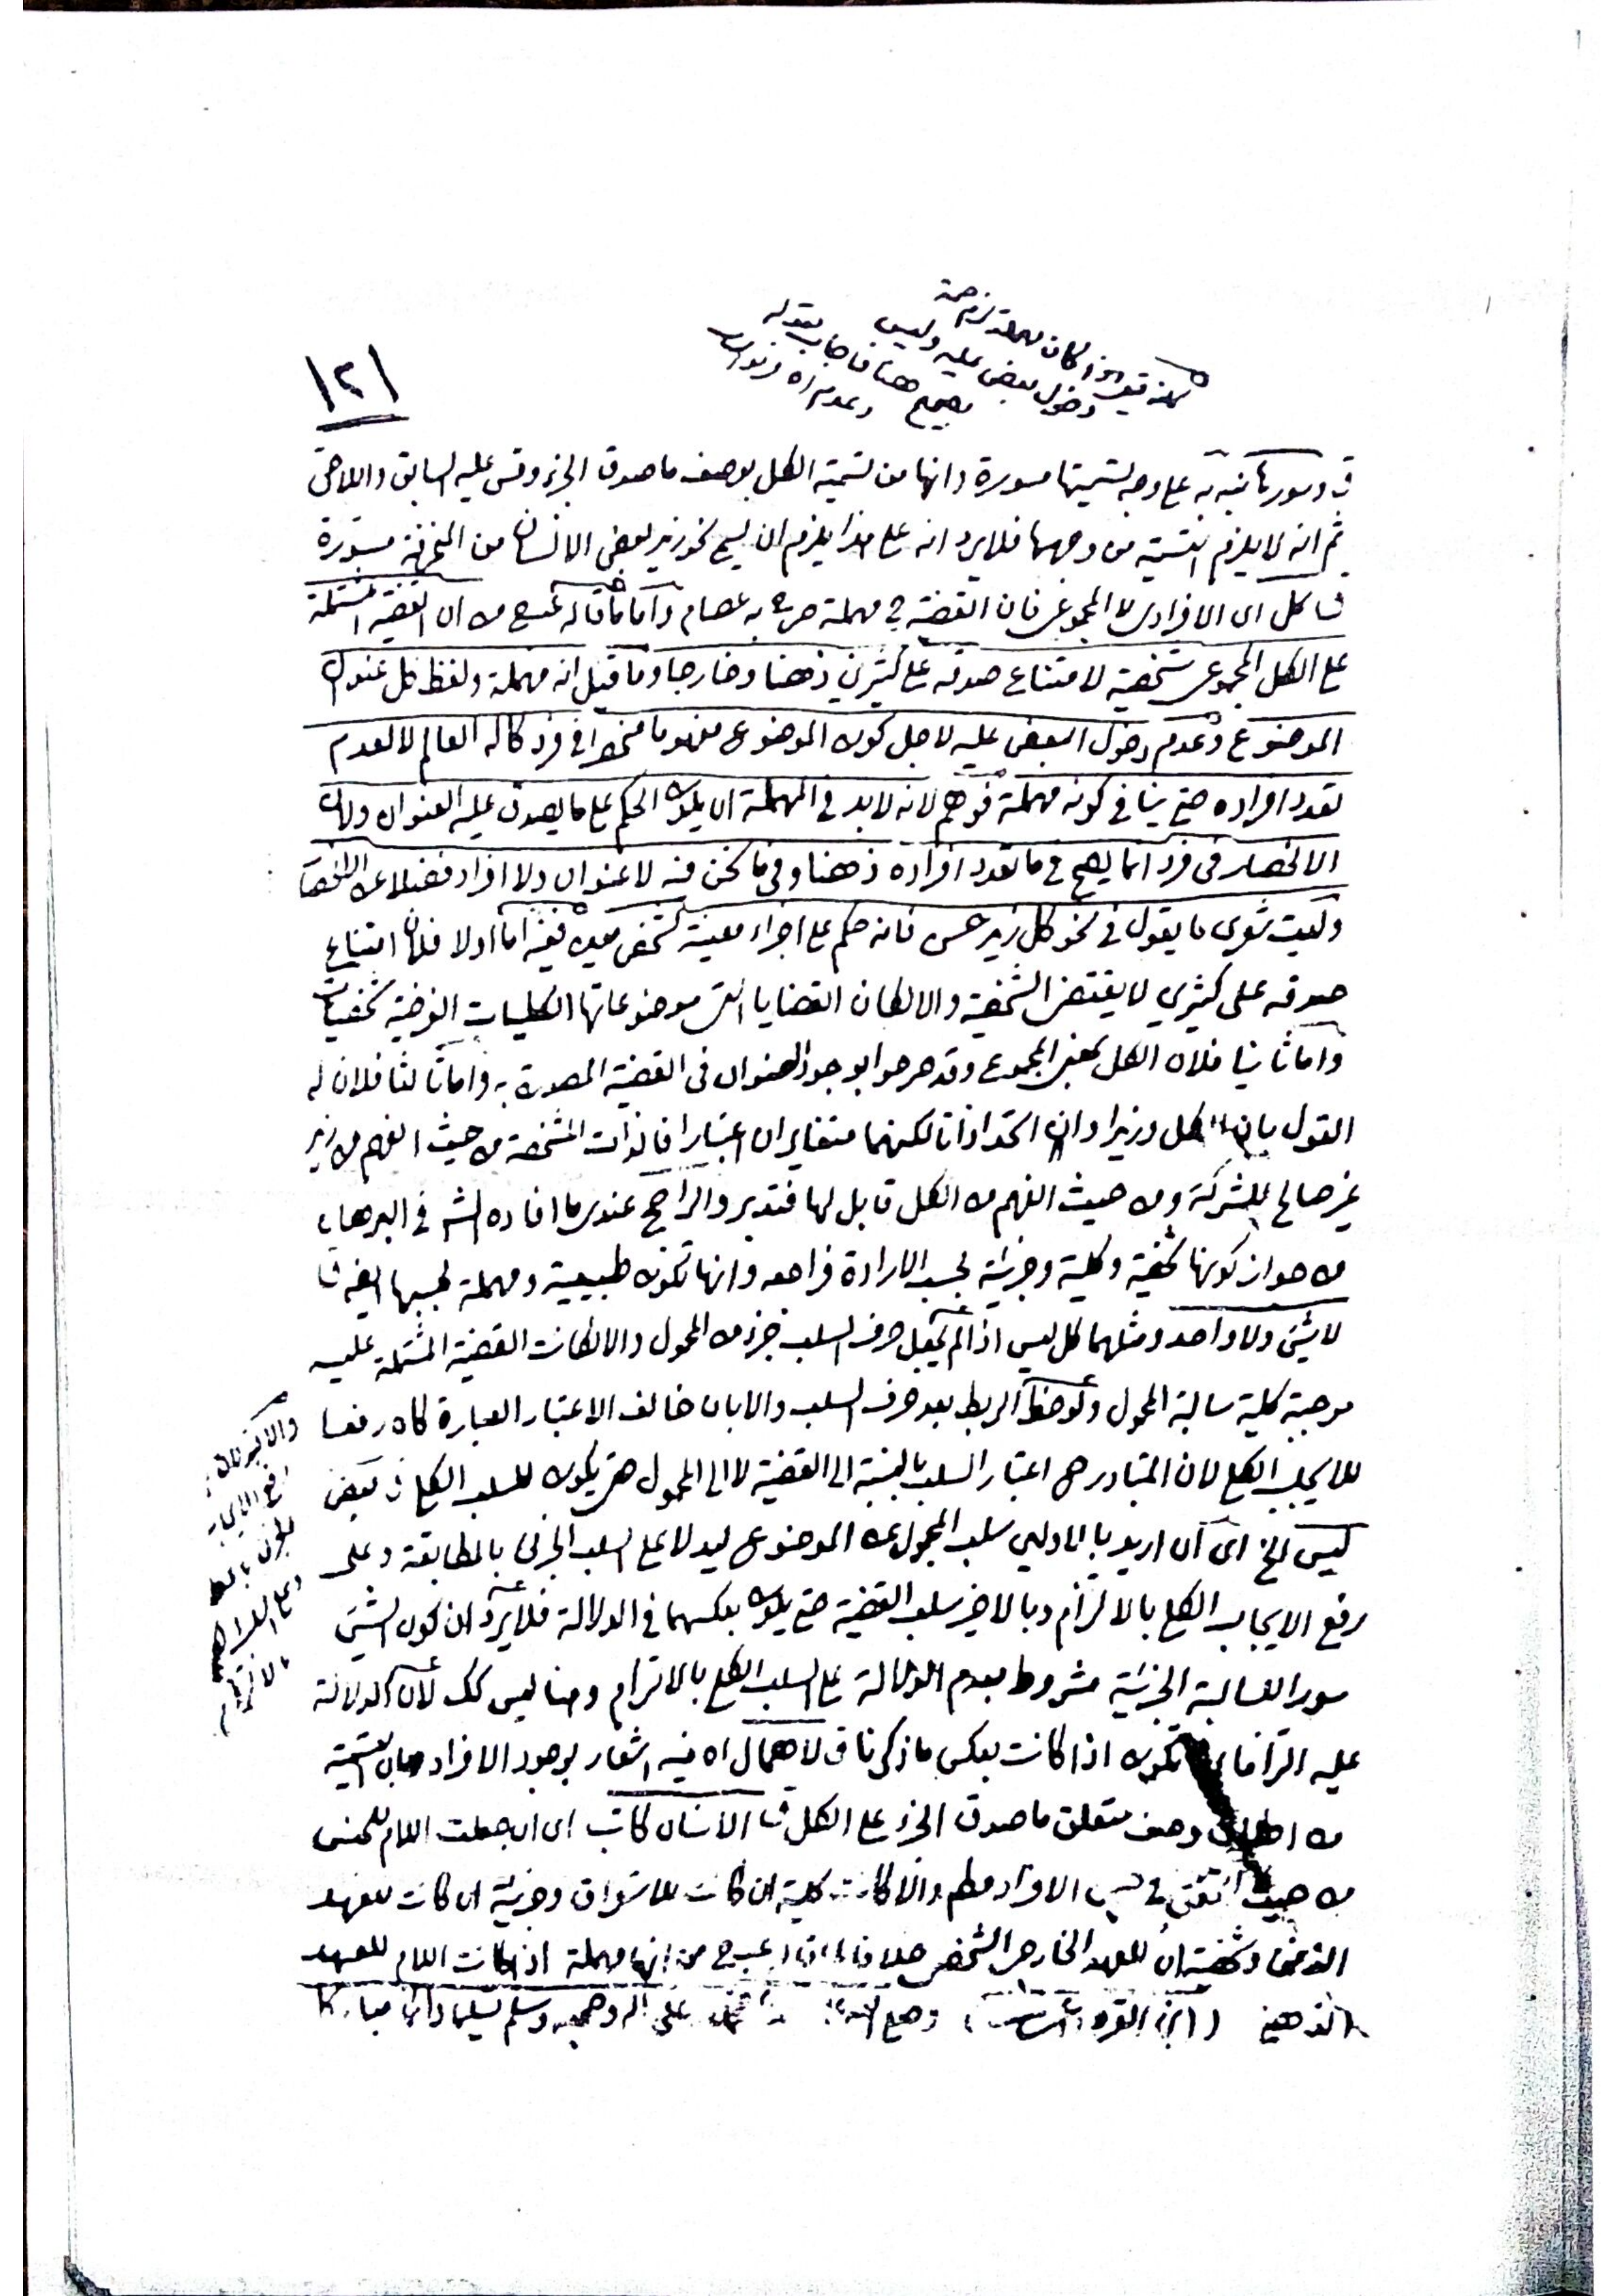 ١٢١
كأنه قيل اذا كان مهملة لزم صحة
دخول بعض عليه وليس
بصحيح هنا فاجاب بقوله
وعدم اه
ق وسورها نبه به على وجه تسميتها مسورة وانها من تسمية الكل بوصف ما صدق الجزء وقس عليه السابق واللاحق
ثم انه لا يلزم التسمية من وجهها فلا يرد انه على هذا يلزم ان يسمى نحو زيد بعض الانسان من المنحرفة مسورة
ق كل اى الافرادى لا المجموعى فان القضية ح مهملة صرح به عصام واما ما قاله عبدح من ان القضية المشتملة
على الكل المجموعى شخصية لامتناع صدقه على كثيرين ذهنا وخارجا وما قيل انه مهملة ولفظ كل عنوان
الموضوع وعدم دخول البعض عليه لاجل كون الموضوع مفهوما منحصرا فى فرد كاله العالم لا لعدم
تعدد افراده حتى ينافى كونه مهملة فوهم لانه لا بد فى المهملة ان يكون الحكم على ما يصدق عليه العنوان ولان
الانحصار فى فرد انما يصح فى ما تعدد افراده ذهنا وفى ما نحن فيه لا عنوان ولا افراد فضلا عن الانحصار
وليت شعرى ما يقول فى نحو كل زيد حسن فانه حكم على اجزاء معينة لشخص معين ففيه اما اولا فلان امتناع
صدقه على كثيرين لا يقتضى الشخصية والا لكان القضايا التى موضوعاتها الكليات الفرضية شخصيات
واما ثانيا فلان الكل بمعنى المجموع وقد صرحوا بوجود العنوان فى القضية المصدرة به واما ثالثا فلان له
القول بان الكل وزيدا وان اتحدا ذاتا لكنهما متغايران اعتبارا فالذات المشخصة من حيث الفهم من زيد
غير صالح للشركة ومن حيث الفهم من الكل قابل لها فتدبر والراجح عندى ما افاده الش فى البرهان
من جواز كونها شخصية وكلية وجزئية بحسب الارادة فراجعه وانها تكون طبيعية ومهملة بحسبها ايضا ق
لا شئ ولا واحد ومثلهما كل ليس اذا لم يجعل حرف السلب جزء من المحمول والا لكانت القضية المشتملة عليه
موجبة كلية سالبة المحمول ولوحظ الربط بعد حرف السلب والا بان خالف الاعتبار العبارة كان رفعا
للايجاب الكلى لان المتبادر ح اعتبار السلب بالنسبة الى القضية لا الى المحمول حتى يكون للسلب الكلى ق بعض
ليس الخ اى ان اريد بالاولين سلب المحمول عن الموضوع ليدلا على السلب الجزئى بالمطابقة وعلى
رفع الايجاب الكلى بالالتزام وبالاخير سلب القضية حتى يكون بعكسهما فى الدلالة فلا يرد ان كون الشئ
سور السالبة الجزئية مشروط بعدم الدلالة على السلب الكلى بالالتزام وهنا ليس كك لان الدلالة
عليه التزاما تكون اذا كانت بعكس ما ذكرنا ق لاهمال اه فيه اشعار بوجود الافراد وبان التسمية
من اطلاق وصف متعلق ما صدق الجزء على الكل ق الانسان كاتب اى ان جعلت اللام للجنس
من حيث الافراد مط والا كانت كلية ان كانت للاستغراق وجزئية ان كانت للعهد
الذهنى وشخصية ان للعهد الخارجى الشخصى خلافا عبدح من انها مهملة اذا كانت اللام للعهد
الذهنى ( ابن القره ) وصلى على اله وصحبه وسلم تسليما دائما مباركا
والاخير على
رفع الايجاب
وعلى السلب
بالالتزام